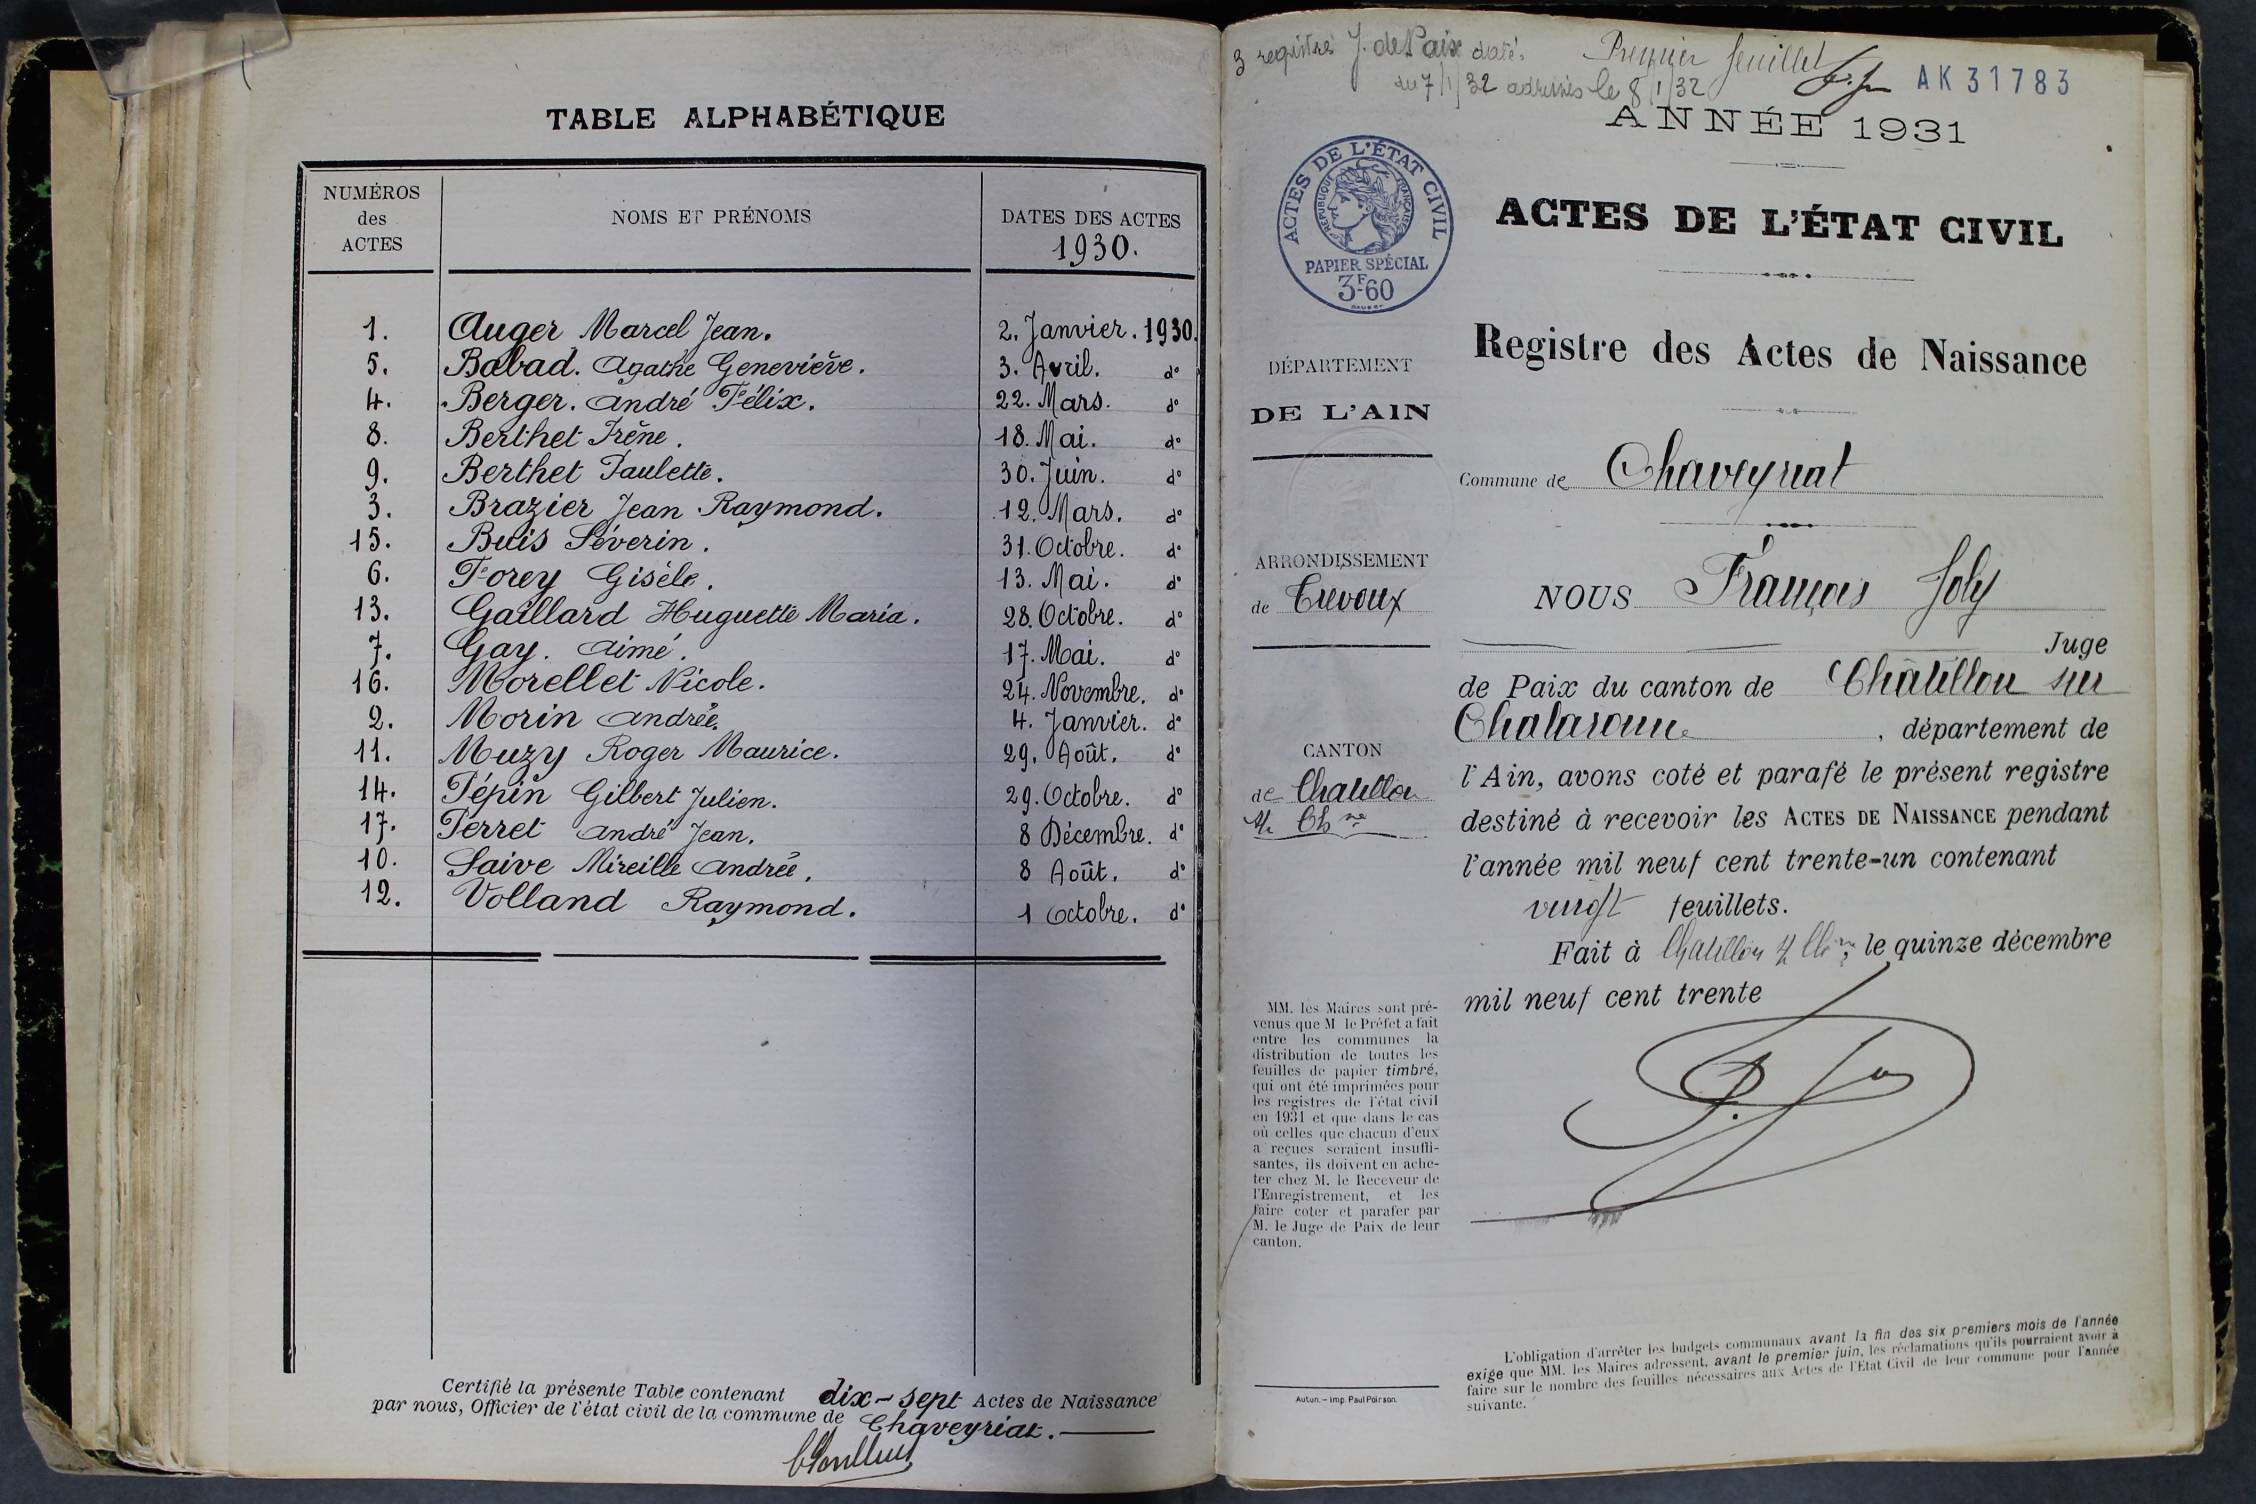 TABLE ALPHABÉTIQUE
NUMÉROS des ACTES NOMS ET PRÉNOMS DATES DES ACTES 1930.
1. Auger Marcel Jean. 2. Janvier. 1930.
5. Babad. Agathe Geneviève. 3. Avril. do
4. Berger. André Félix. 22. Mars. do
8. Berthet Irène. 18. Mai. do
9. Berthet Paulette. 30. Juin. do
3. Brazier Jean Raymond. 12. Mars. do
15. Buis Séverin. 31. Octobre. do
6. Forey Gisèle. 13. Mai. do
13. Gaillard Huguette Maria. 28. Octobre. do
7. Gay. Aimé. 17. Mai. do
16. Morellet Nicole. 24. Novembre. do
2. Morin Andrée. 4. Janvier. do
11. Muzy Roger Maurice. 29. Août. do
14. Pépin Gilbert Julien. 29. Octobre. do
17. Perret André Jean. 8 Décembre. do
10. Saive Mireille Andrée. 8 Août. do
12. Volland Raymond. 1 Octobre. do
Certifié la présente Table contenant dix-sept Actes de Naissance
par nous, Officier de l'état civil de la commune de Chaveyriat.
3 registres J. de Paix datés
du 7/1/32 adressés le 8/1/32
Premier feuillet
AK 31783
ANNÉE 1931
ACTES DE L'ÉTAT CIVIL
RÉPUBLIQUE FRANÇAISE
PAPIER SPÉCIAL
3F60
ACTES DE L'ÉTAT CIVIL
Registre des Actes de Naissance
DÉPARTEMENT
DE L'AIN
Commune de Chaveyriat
ARRONDISSEMENT
de Trévoux
NOUS François Joly
Juge
de Paix du canton de Châtillon sur
Chalaronne, département de
CANTON
de Chatillon
s/ Chne
l'Ain, avons coté et parafé le présent registre
destiné à recevoir les ACTES DE NAISSANCE pendant
l'année mil neuf cent trente-un contenant
vingt feuillets.
Fait à Chatillon s/ Chne, le quinze décembre
mil neuf cent trente
MM. les Maires sont pré-
venus que M le Préfet a fait
entre les communes la
distribution de toutes les
feuilles de papier timbré,
qui ont été imprimées pour
les registres de l'état civil
en 1931 et que dans le cas
où celles que chacun d'eux
a reçues seraient insuffi-
santes, ils doivent en ache-
ter chez M. le Receveur de
l'Enregistrement, et les
faire coter et parafer par
M. le Juge de Paix de leur
canton.
L'obligation d'arrêter les budgets communaux avant la fin des six premiers mois de l'année
exige que MM. les Maires adressent, avant le premier juin, les réclamations qu'ils pourraient avoir à
faire sur le nombre des feuilles nécessaires aux Actes de l'État Civil de leur commune pour l'année
suivante.
Autun. – Imp. Paul Poirson.